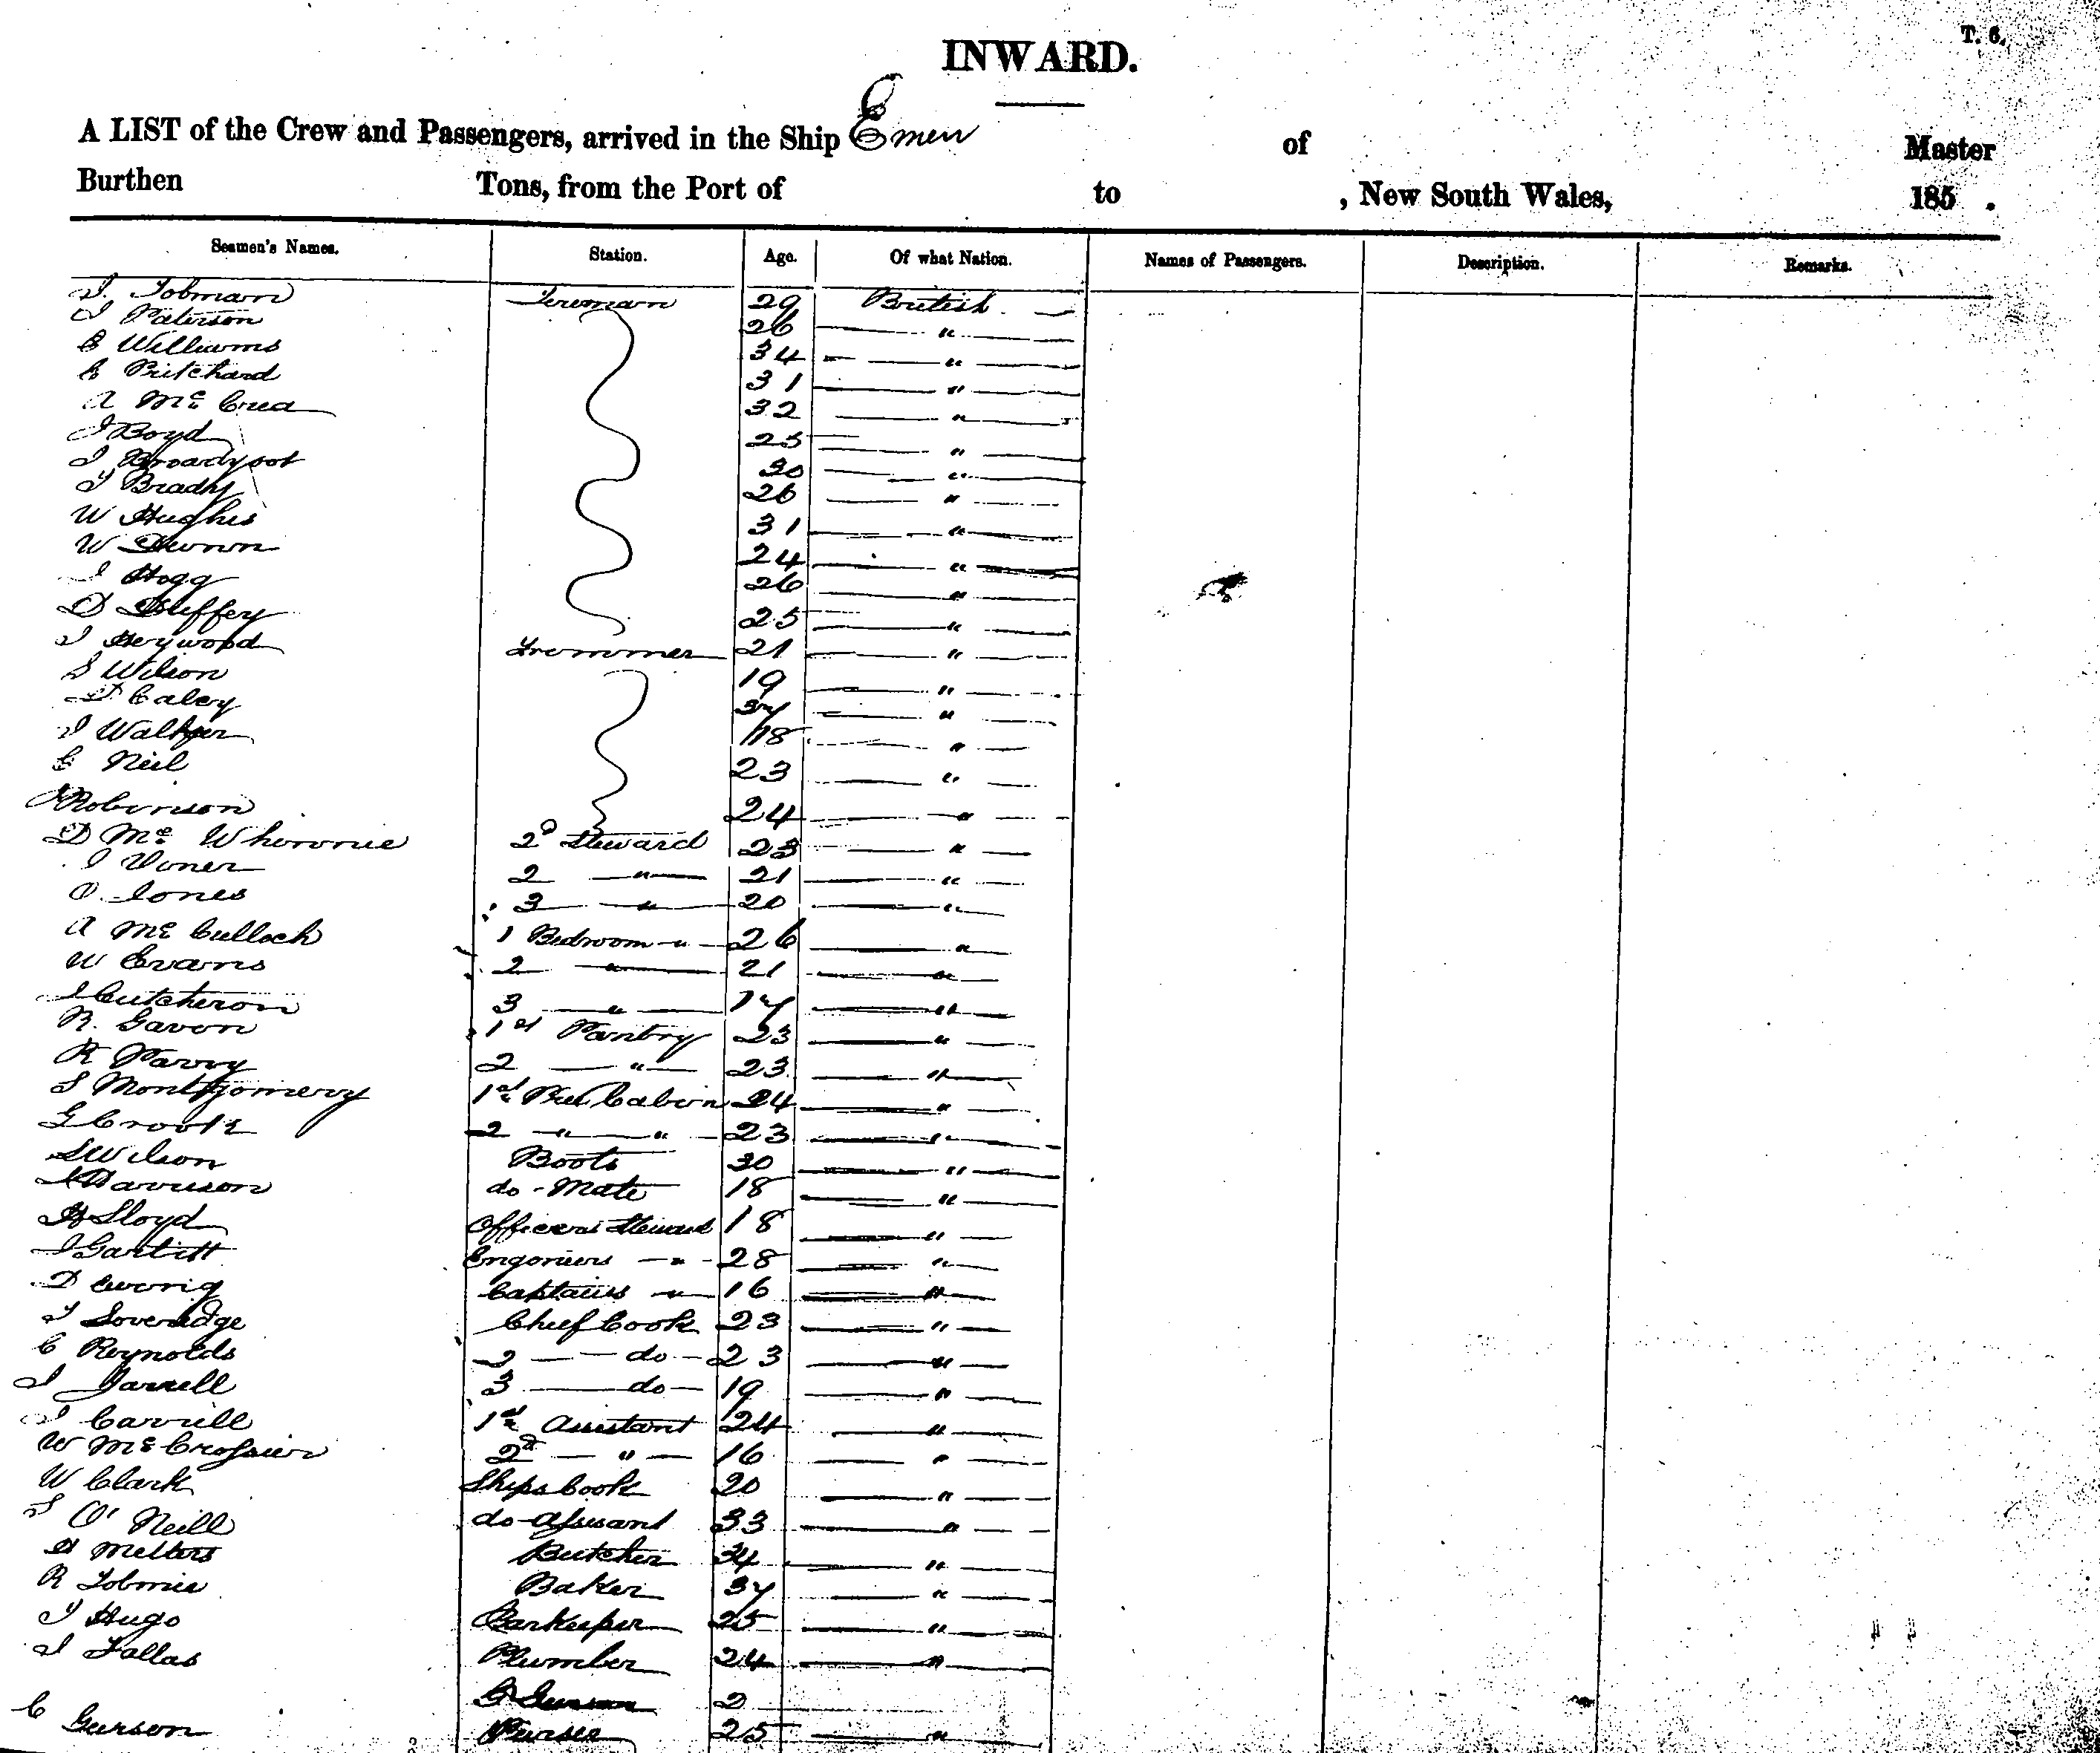 T. 6.
INWARD.
A LIST of the Crew and Passengers, arrived in the Ship Emeu of Master
Burthen Tons, from the Port of to , New South Wales, 185 .
Seamen's Names. Station. Age. Of what Nation. Names of Passengers. Description. Remarks.
Tobman 29 British
J Paterson 26 "
Williams 34 "
Pritchard 31 "
A Mc Crea 32 "
J Boyd 25 "
J Broadfoot 30 "
Brady 26 "
W Hughes 31 "
W 24 "
J Hogg 26 "
D Duffey 25 "
J Heywood Trimmer 21 "
S Wilson 19 "
Caley 37 "
J Walker 18 "
C Neil 23 "
Robinson 24 "
D Mc Whinnie 2d Steward 23 "
J 2 " 21 "
O. Jones 3 " 20 "
A Mc Culloch 1 Bedroom " 26 "
W Evans 2 " 21 "
J Cutcheron 3 " 17 "
R. Gavon 1st Pantry 23 "
R Parry 2 " 23 "
S Montgomery 1st Cabin 24 "
G Crook 2 " " 23 "
S Wilson Boots 30 "
J Davison do - Mate 18 "
H Lloyd Officers Steward 18 "
J Engineers " 28 "
D Ewing Captains " 16 "
Loveredge Chief Cook 23 "
C Reynolds 2 do 23 "
J Jarrell 3 do 19 "
J Carrill 1st Assistant 24 "
W Mc 2d " 16 "
W Clark Ships Cook 20 "
O' Neill do 33 "
Butcher 34 "
R Baker 37 "
Hugo Barkeeper 25 "
J Fallas Plumber 24 "
2
C Gurson Purser 25 "